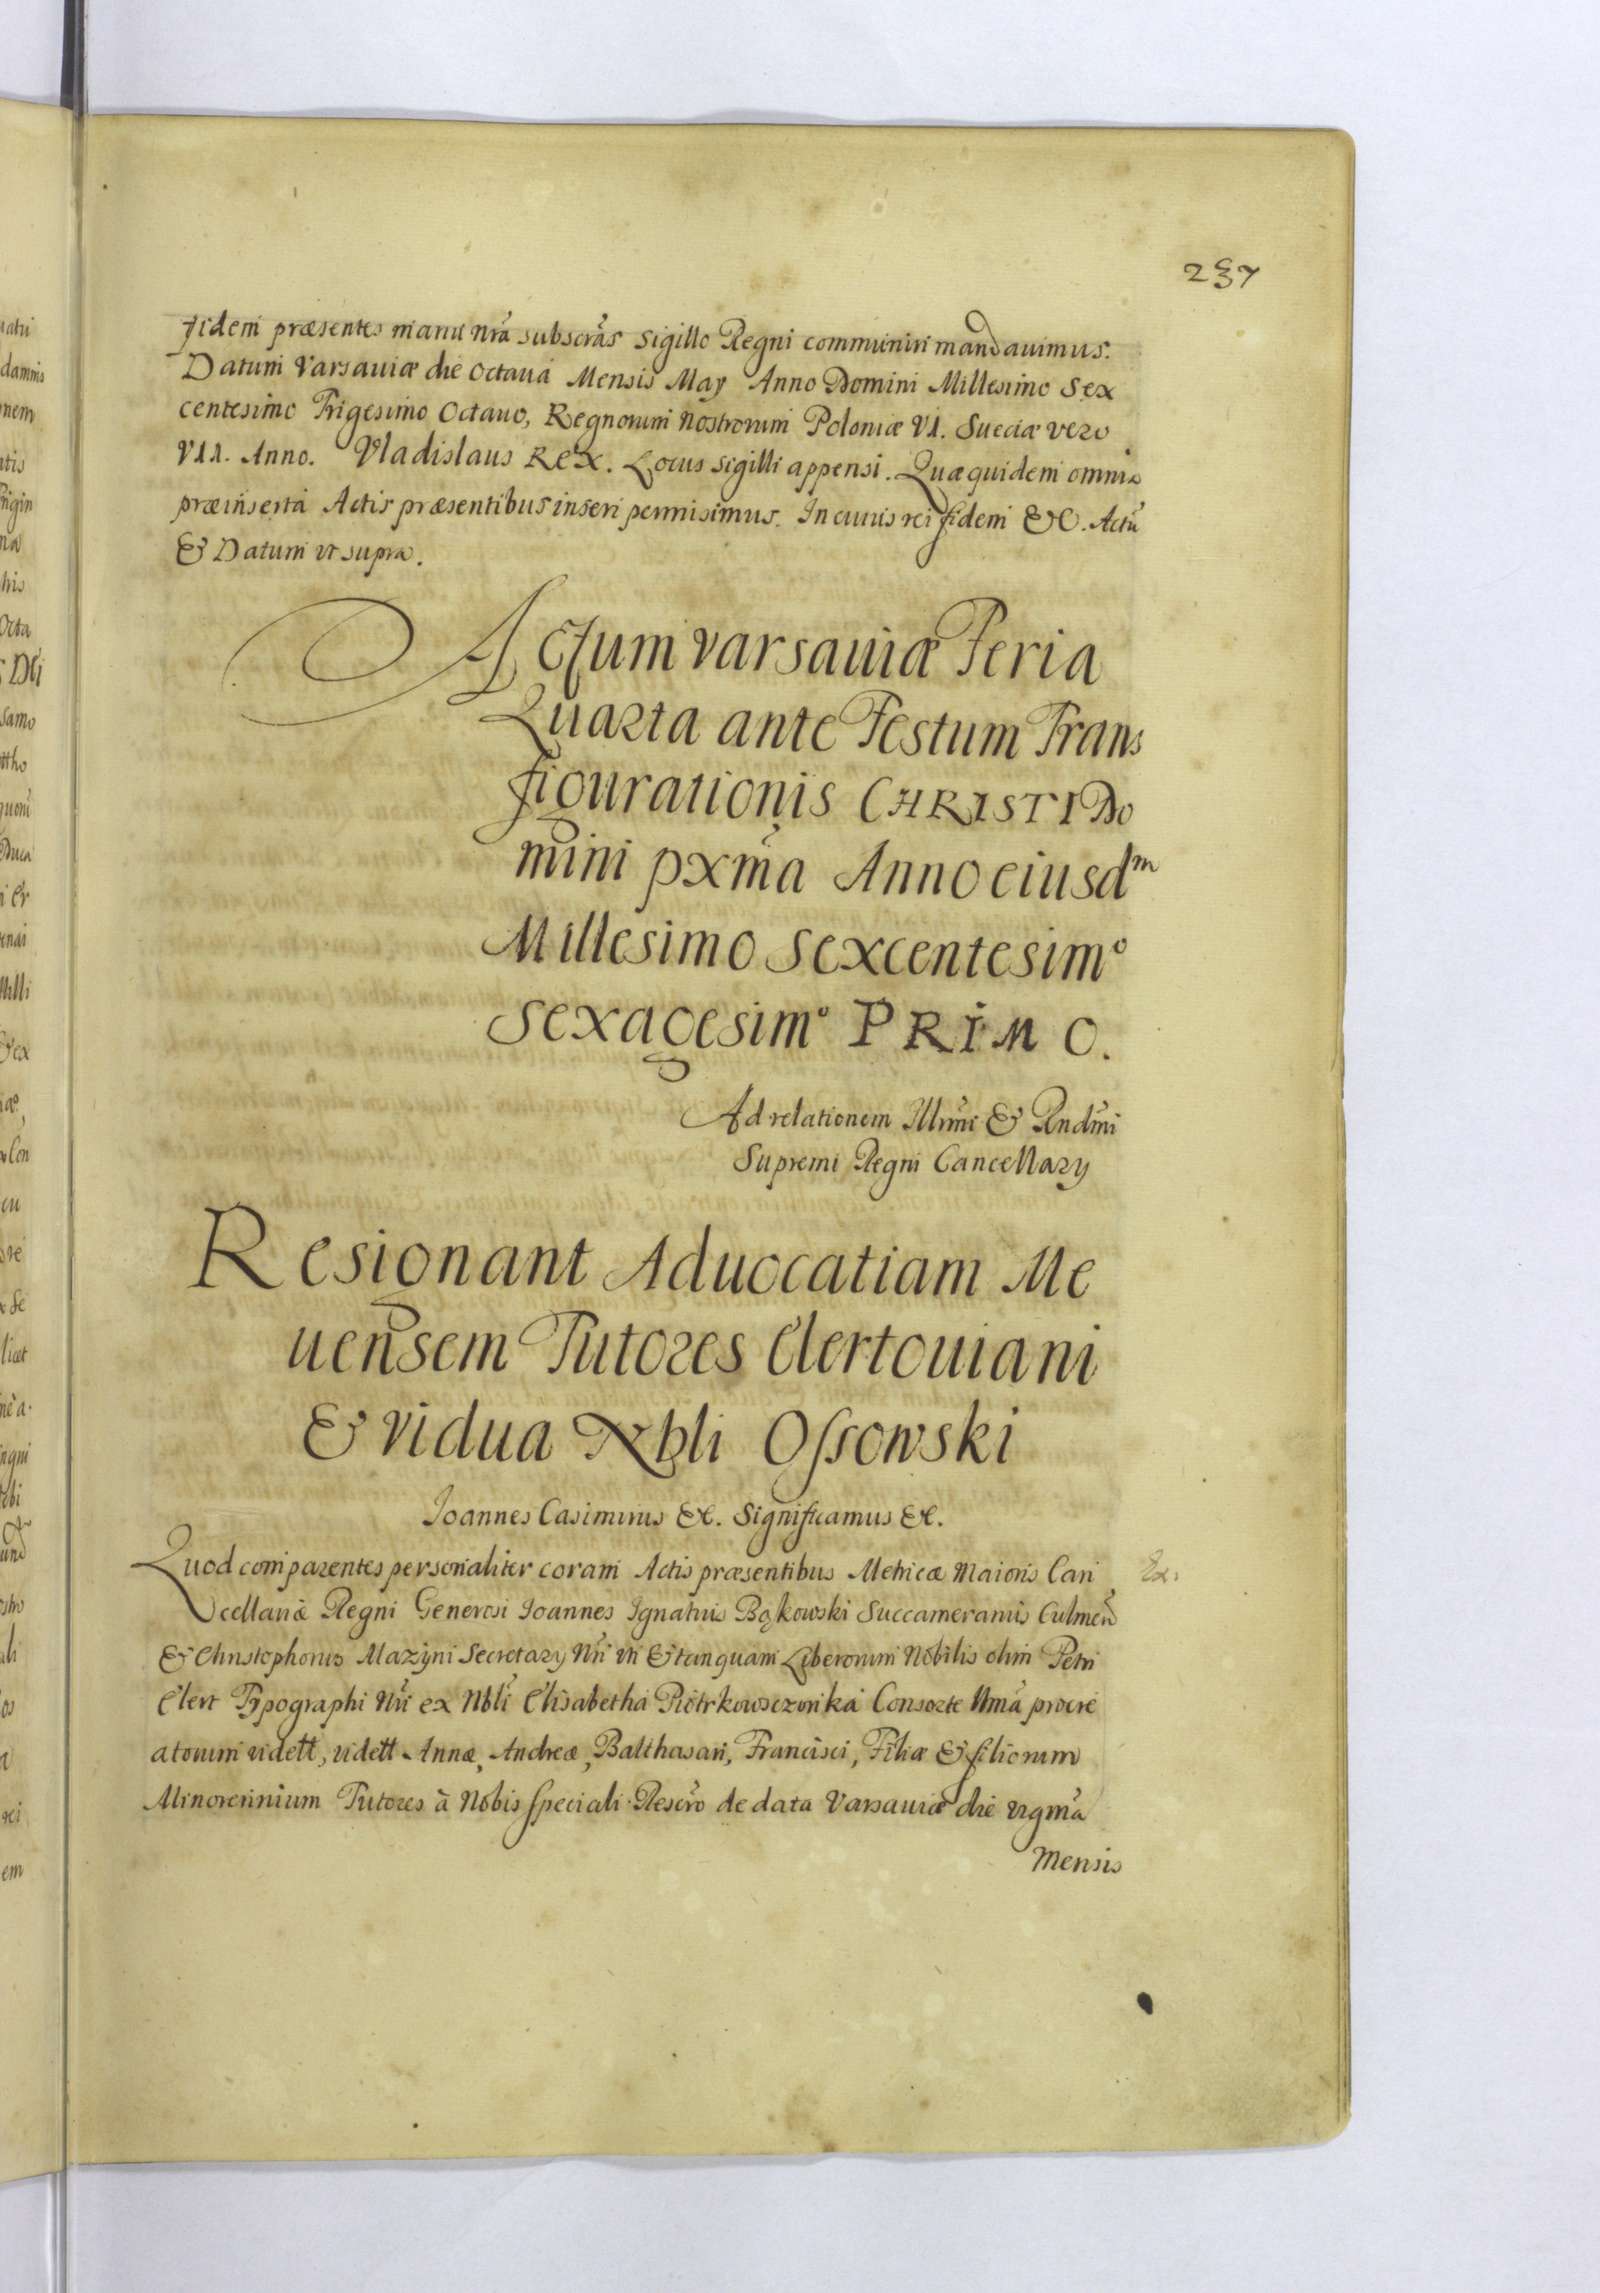 237
fidem præsentes manu nrã subscrãs Sigillo Regni communiri mandauimus.
Datum Varsauiæ die Octauâ Mensis May Anno Domini Millesimo Sex
centesimo Trigesimo Octauo, Regnorum Nostrorum Poloniæ VI. Sueciæ vero
VII. Anno. Vladislaus REX. Locus Sigilli appensi. Quæ quidem omnia
præinserta Actis præsentibus inseri permisimus. In cuius rei fidem &c. Actũ
& Datum vt supra.
Actum Varsauiæ Feria
Quarta ante Festum Trans
figurationis CHRISTI Do
mini pxmã Anno eiusdm
Millesimo Sexcentesimo
Sexagesimo PRIMO.
Ad relationem Illrmi & Rndmi
Supremi Regni Cancellary
Resignant Aduocatiam Me
uensem Tutores Elertouiani
& Vidua Nbli Ossowski
Ioannes Casimirus &c. Significamus &c.
Quod comparentes personaliter coram Actis præsentibus Metricæ Maioris Can
cellariæ Regni Generosi Ioannes Ignatius Bąkowski Succamerarius Culmen
& Christophorus Mazyni Secretary Nri vti & tanquam Liberorum Nobilis olim Petri
Elert Typographi Nri ex Nbli Elisabetha Piotrkowsczonka Consorte Uma procre
atorum vidett, vidett Annæ, Andreæ, Balthasari, Francisci, Filiæ & filiorum
Minorennium Tutores à Nobis speciali Rescro de data Varsauiæ die vigmã
Mensis